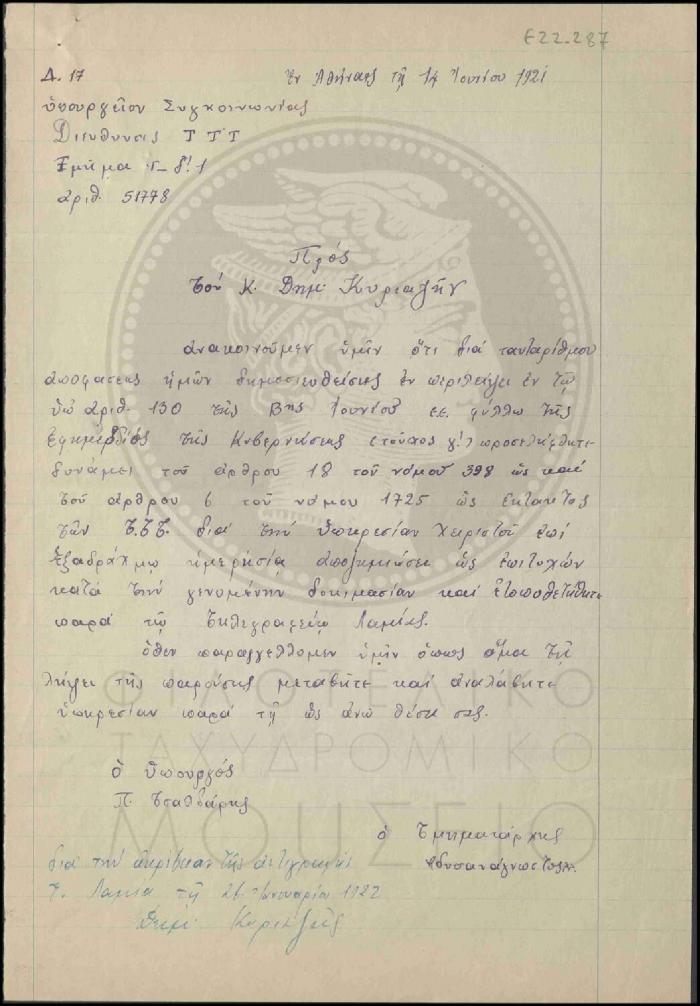 Ε22-287
Δ. 17
Ἐν Ἀθήναις τῇ 14 Ἰουνίου 1921
Ὑπουργεῖον Συγκοινωνίας
Διεύθυνσις Τ Τ Τ
Τμῆμα
ἀριθ. 51778
Πρός
Τὸν κ. Δημ. Κυριαζῆν
ἀνακοινοῦμεν ὑμῖν ὅτι διὰ ταυταρίθμου
ἀποφάσεως ἡμῶν δημοσιευθείσης ἐν περιλήψει ἐν τῷ
ὑπ' ἀριθ. 130 τῆς 8ης Ἰουνίου ε.ε. φύλλῳ τῆς
Ἐφημερίδος τῆς Κυβερνήσεως (τεῦχος γ!) προσελήφθητε
δυνάμει τοῦ ἄρθρου 18 τοῦ νόμου 398 ὡς καὶ
τοῦ ἄρθρου 6 τοῦ νόμου 1725 ὡς ἔκτακτος
τῶν Τ.Τ.Τ. διὰ τὴν ὑπηρεσίαν χειριστοῦ ἐπὶ
ἑξαδράχμῳ ἡμερησίᾳ ἀποζημιώσει ὡς ἐπιτυχὼν
κατὰ τὴν γενομένην δοκιμασίαν καὶ ἐτοποθετήθητε
παρὰ τῷ τηλεγραφείῳ Λαμίας.
ὅθεν παραγγέλλομεν ὑμῖν ὅπως ἅμα τῇ
λήψει τῆς παρούσης μεταβῆτε καὶ ἀναλάβητε
ὑπηρεσίαν παρὰ τῇ ὡς ἄνω θέσει σας.
ὁ Ὑπουργός
Π. Τσαλδάρης
ὁ Τμηματάρχης
διὰ τὴν ἀκρίβειαν τῆς ἀντιγραφῆς
Λαμία τῇ 26 Ἰανουαρίου 1922
Δημ. Κυριαζῆς
ΦΙΛΟΤΕΛΙΚΟ
ΤΑΧΥΔΡΟΜΙΚΟ
ΜΟΥΣΕΙΟ